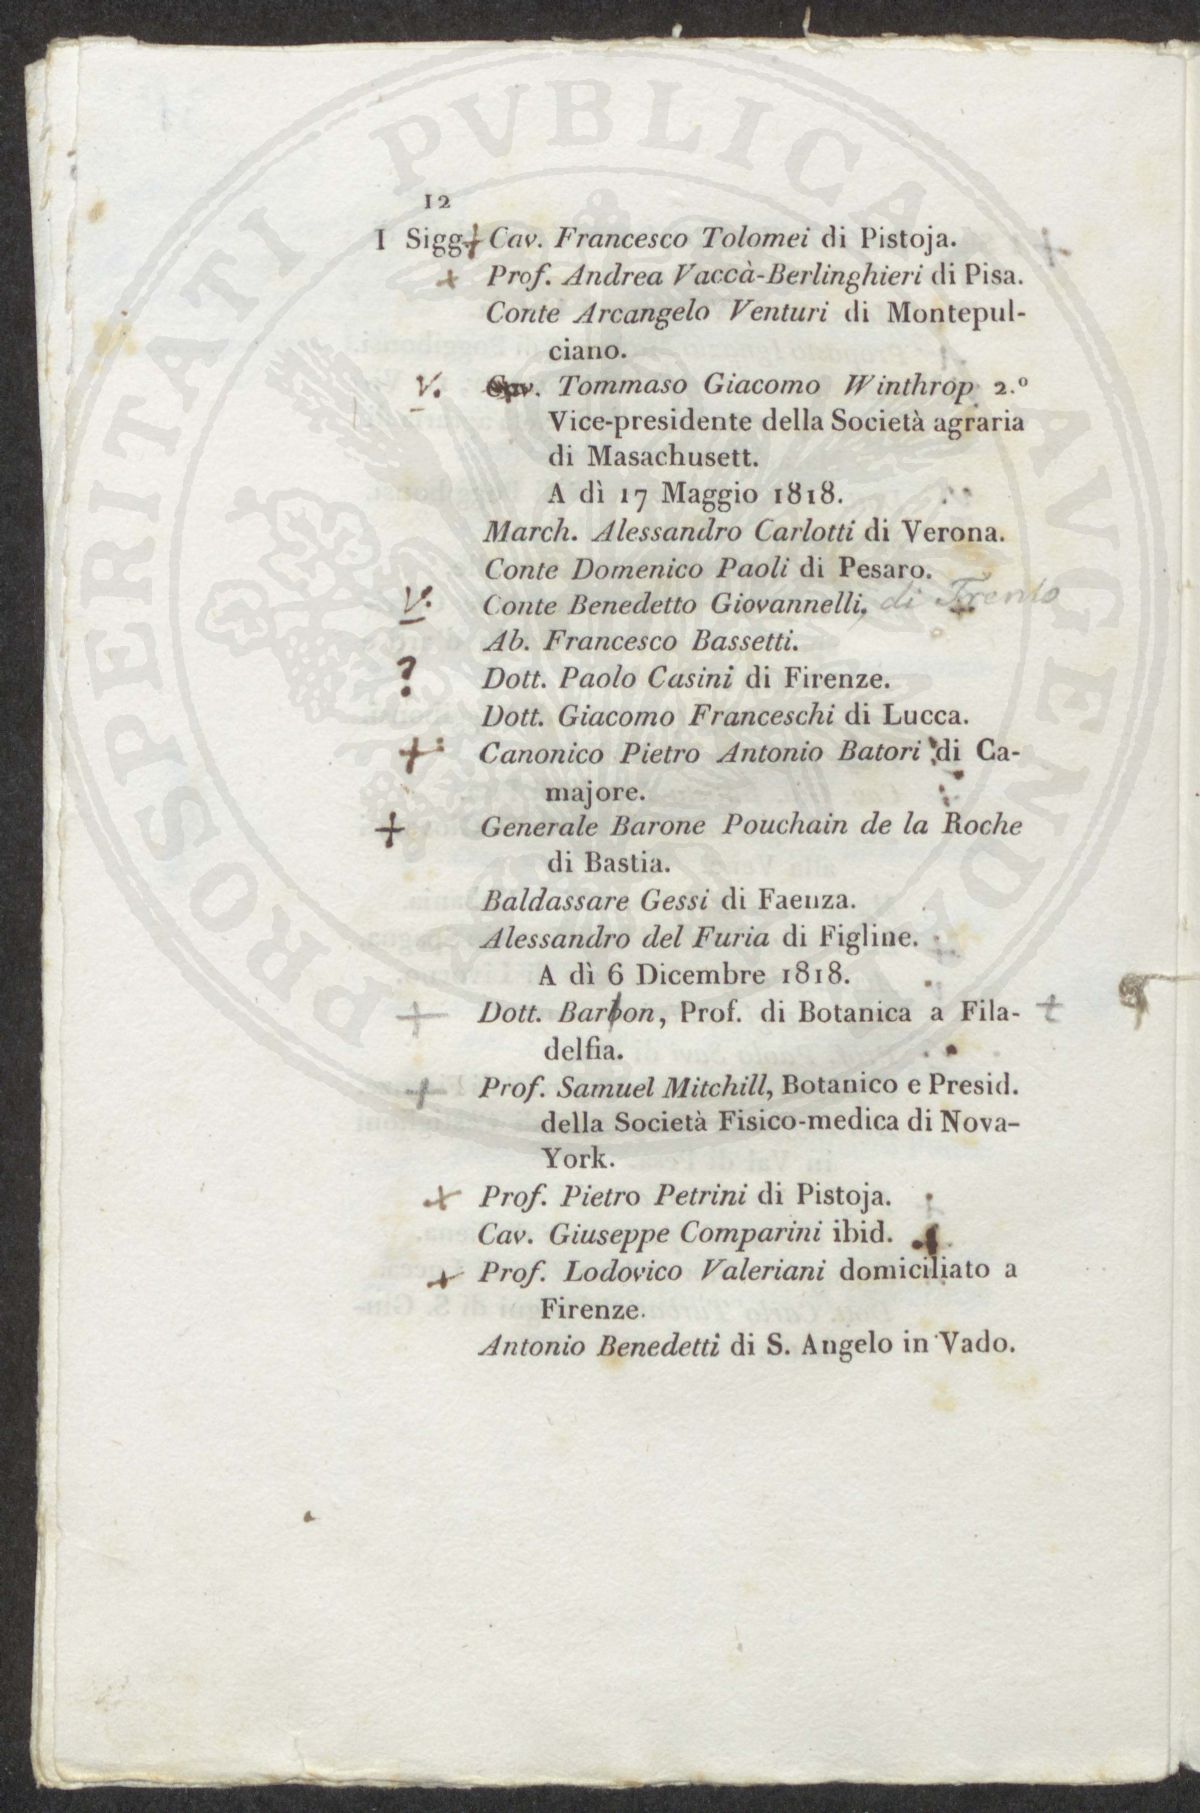 12
I Sigg. + Cav. Francesco Tolomei di Pistoja. +
+ Prof. Andrea Vaccà-Berlinghieri di Pisa.
Conte Arcangelo Venturi di Montepul-
ciano.
V. Cav. Tommaso Giacomo Winthrop 2.º
Vice-presidente della Società agraria
di Masachusett.
A dì 17 Maggio 1818.
March. Alessandro Carlotti di Verona.
Conte Domenico Paoli di Pesaro.
V. Conte Benedetto Giovannelli, di Trento
Ab. Francesco Bassetti.
? Dott. Paolo Casini di Firenze.
Dott. Giacomo Franceschi di Lucca.
+ Canonico Pietro Antonio Batori di Ca-
majore.
+ Generale Barone Pouchain de la Roche
di Bastia.
Baldassare Gessi di Faenza.
Alessandro del Furia di Figline.
A dì 6 Dicembre 1818.
+ Dott. Barton, Prof. di Botanica a Fila- +
delfia.
+ Prof. Samuel Mitchill, Botanico e Presid.
della Società Fisico-medica di Nova-
York.
+ Prof. Pietro Petrini di Pistoja.
Cav. Giuseppe Comparini ibid. +
+ Prof. Lodovico Valeriani domiciliato a
Firenze.
Antonio Benedetti di S. Angelo in Vado.
PROSPERITATI PVBLICAE AVGENDAE